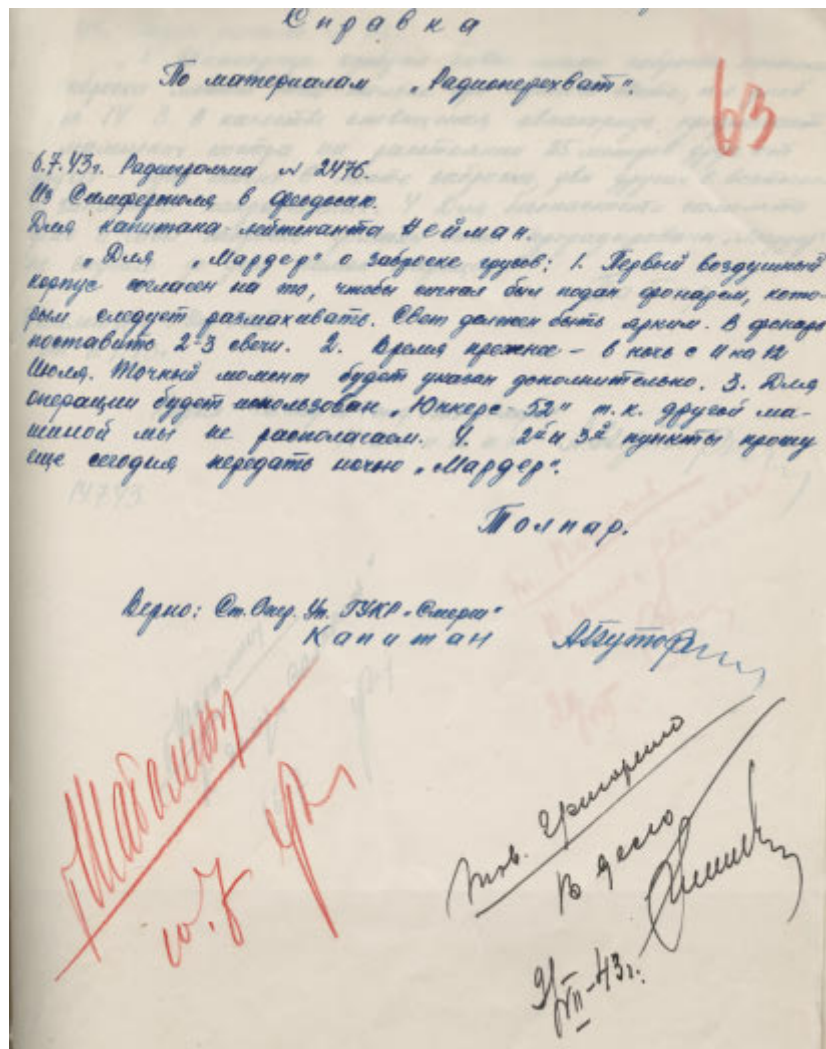 Справка
По материалам „Радиоперехват".
63
6.7.43г. Радиограмма № 2476.
Из Симферополя в Феодосию.
Для капитана-лейтенанта Нейман.
„Для „Мардер" о заброске грузов: 1. Первый воздушный
корпус согласен на то, чтобы сигнал был подан фонарем, кото-
рым следует размахивать. Свет должен быть ярким. В фонарь
поставить 2-3 свечи. 2. Время прежнее – в ночь с 11 на 12
июля. Точный момент будет указан дополнительно. 3. Для
операции будет использован „Юнкерс-52" т.к. другой ма-
шиной мы не располагаем. 4. 2й и 3й пункты прошу
еще сегодня передать ночью „Мардер".
Толпар.
Верно: Ст. Опер. Уп. ГУКР „Смерш"
Капитан
т. Шабалину
тов. Григоренко
В дело
VII-43г.